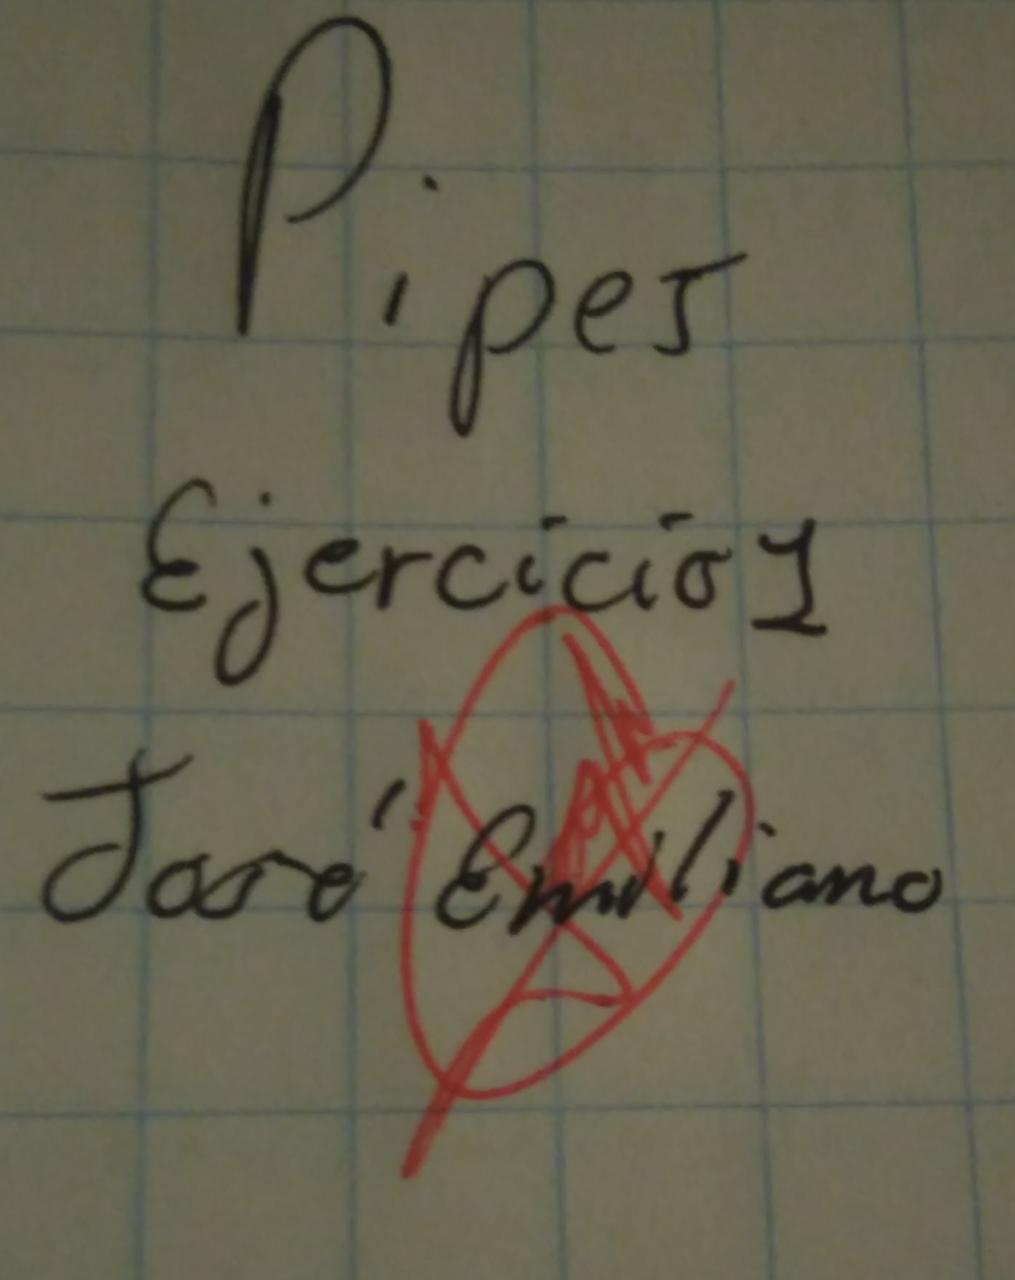 Pipes
Ejercicio 1
José Emiliano